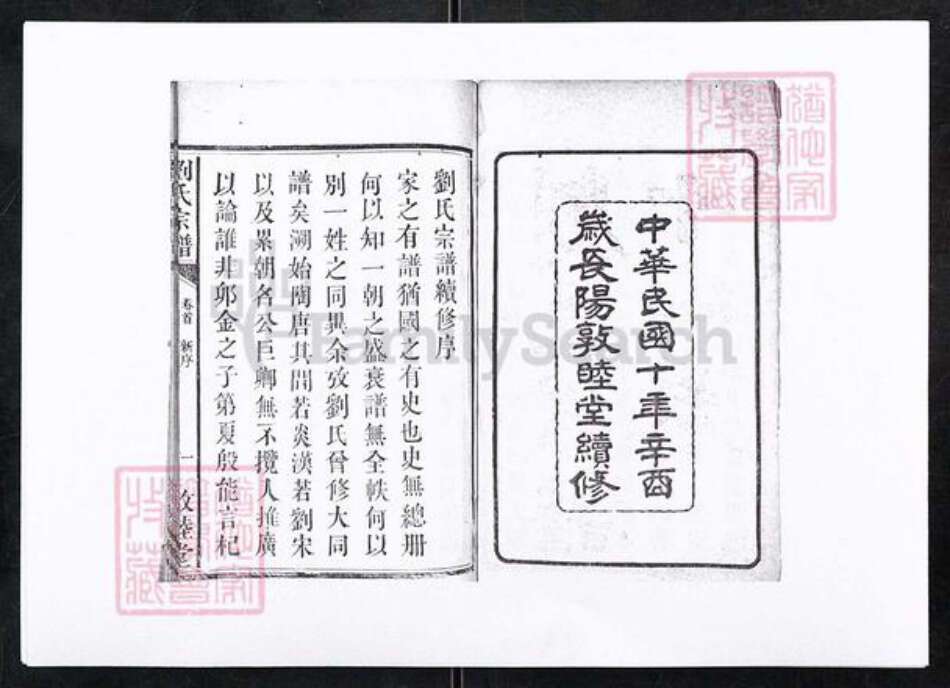 中華民國十年辛酉
歲長陽敦睦堂續修
劉氏宗譜續修序
家之有譜猶國之有史也史無總冊
何以知一朝之盛衰譜無全帙何以
別一姓之同異余攷劉氏曾修大同
譜矣溯始閱唐其間若炎漢若劉宋
以及累朝各公巨卿無不攬人推廣
以論誰非卯金之子第夏殷能言杞
劉氏宗譜
卷首 新序
一
敦睦堂
FamilySearch